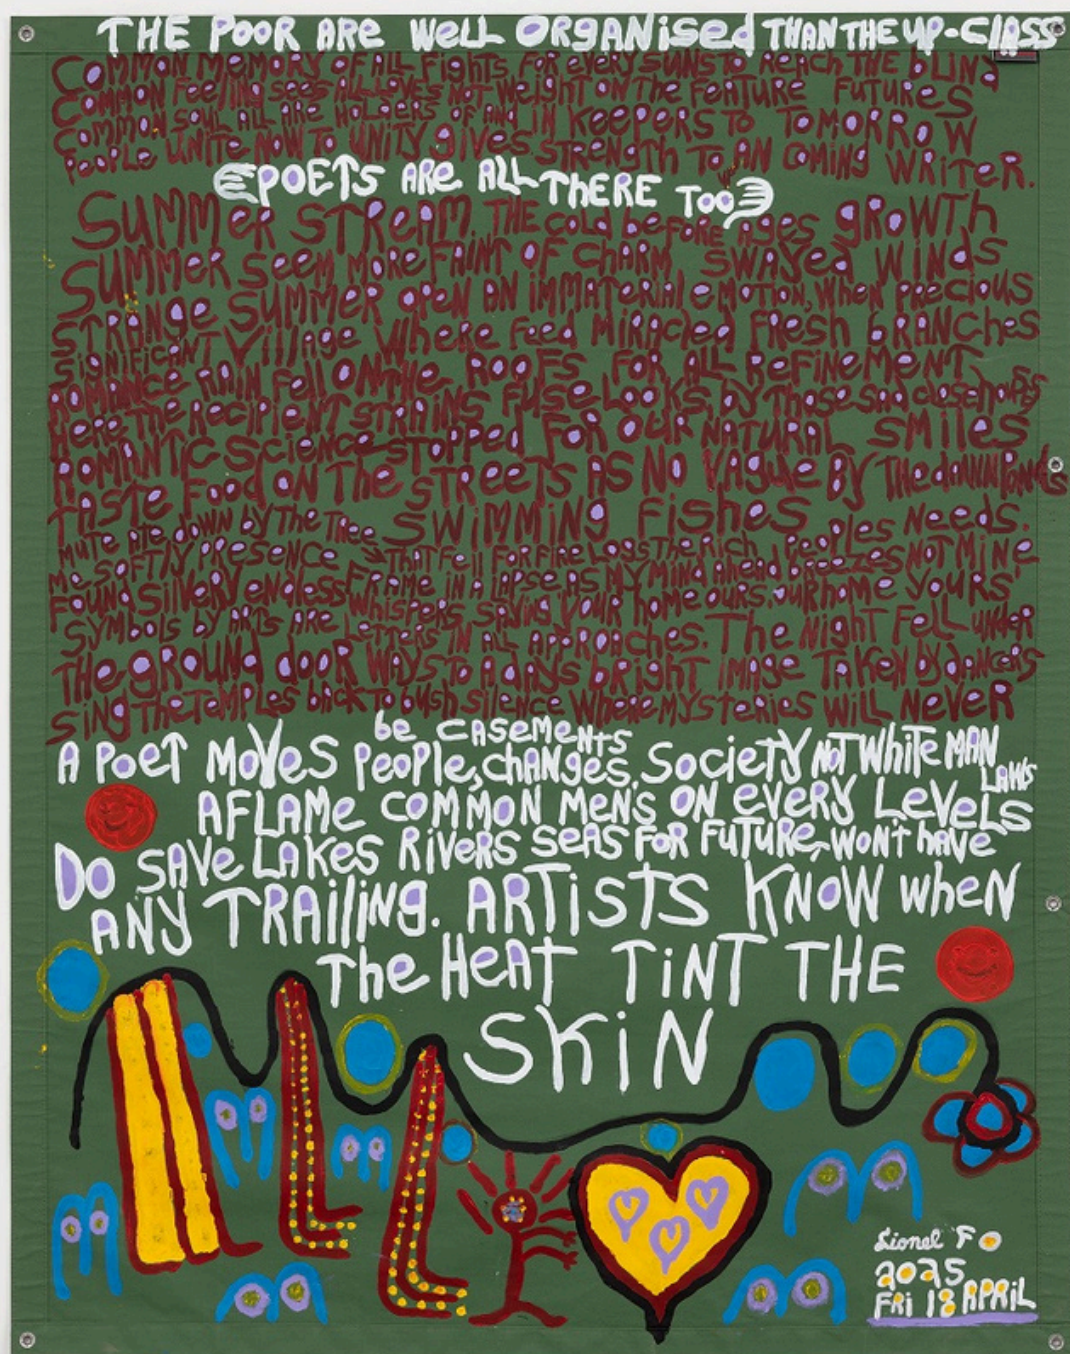 THE POOR ARE WELL ORGANISED THAN THE UP-CLASS
COMMON MEMORY OF ALL FIGHTS FOR EVERY SUNS TO REACH THE BLIND
COMMON FEELING SEES ALL LOVES NOT WEIGHT ON THE FEATURE FUTURES
COMMON SOUL ALL ARE HOLDERS OF AND IN KEEPERS TO TOMORROW
PEOPLE UNITE NOW TO UNITY GIVES STRENGTH TO AN COMING WRITER.
POETS ARE ALL THERE TOO
SUMMER STREAM THE COLD BEFORE AGES GROWTH
SUMMER SEEM MORE FAINT OF CHARM SWAYED WINDS
STRANGE SUMMER OPEN AN IMMATERIAL EMOTION, WHEN PRECIOUS
SIGNIFICANT VILLAGE WHERE FEED MIRACLED FRESH BRANCHES
ROMANCE RAIN FELL ON THE ROOFS FOR ALL REFINEMENT
HERE THE RECIPIENT STRAINS FALSE LOOKS BY THOSE SAD CLOSE
ROMANTIC SCIENCE STOPPED FOR OUR NATURAL SMILES
TASTE FOOD ON THE STREETS AS NO VAGUE BY THE DAWN
MUTE ATE DOWN BY THE TREE SWIMMING FISHES PEOPLES NEEDS.
ME SOFTLY PRESENCE THAT FELL FOR FIRE LOGS THE RICH BREEZES NOT MINE
FOUND SILVERY ENDLESS FRAME IN A LAPSE AS MY MIND AHEAD
WHISPERS SAYING YOUR HOME OURS. OUR HOME YOURS
SYMBOLS BY ARTS ARE LETTERS IN ALL APPROACHES. THE NIGHT FELL UNDER
THE GROUND DOOR WAYS TO A DAYS BRIGHT IMAGE TAKEN BY DANCERS
SING THE TEMPLES BACK TO BUSH SILENCE WHERE MYSTERIES WILL NEVER
be CASEMENTS
A POET MOVES PEOPLE, CHANGES SOCIETY NOT WHITE MAN
LAWS
AFLAME COMMON MEN'S ON EVERY LEVELS
DO SAVE LAKES RIVERS SEAS FOR FUTURE, WON'T HAVE
ANY TRAILING. ARTISTS KNOW WHEN
THE HEAT TINT THE
SKIN
Lionel F O
2025
FRI 18 APRIL